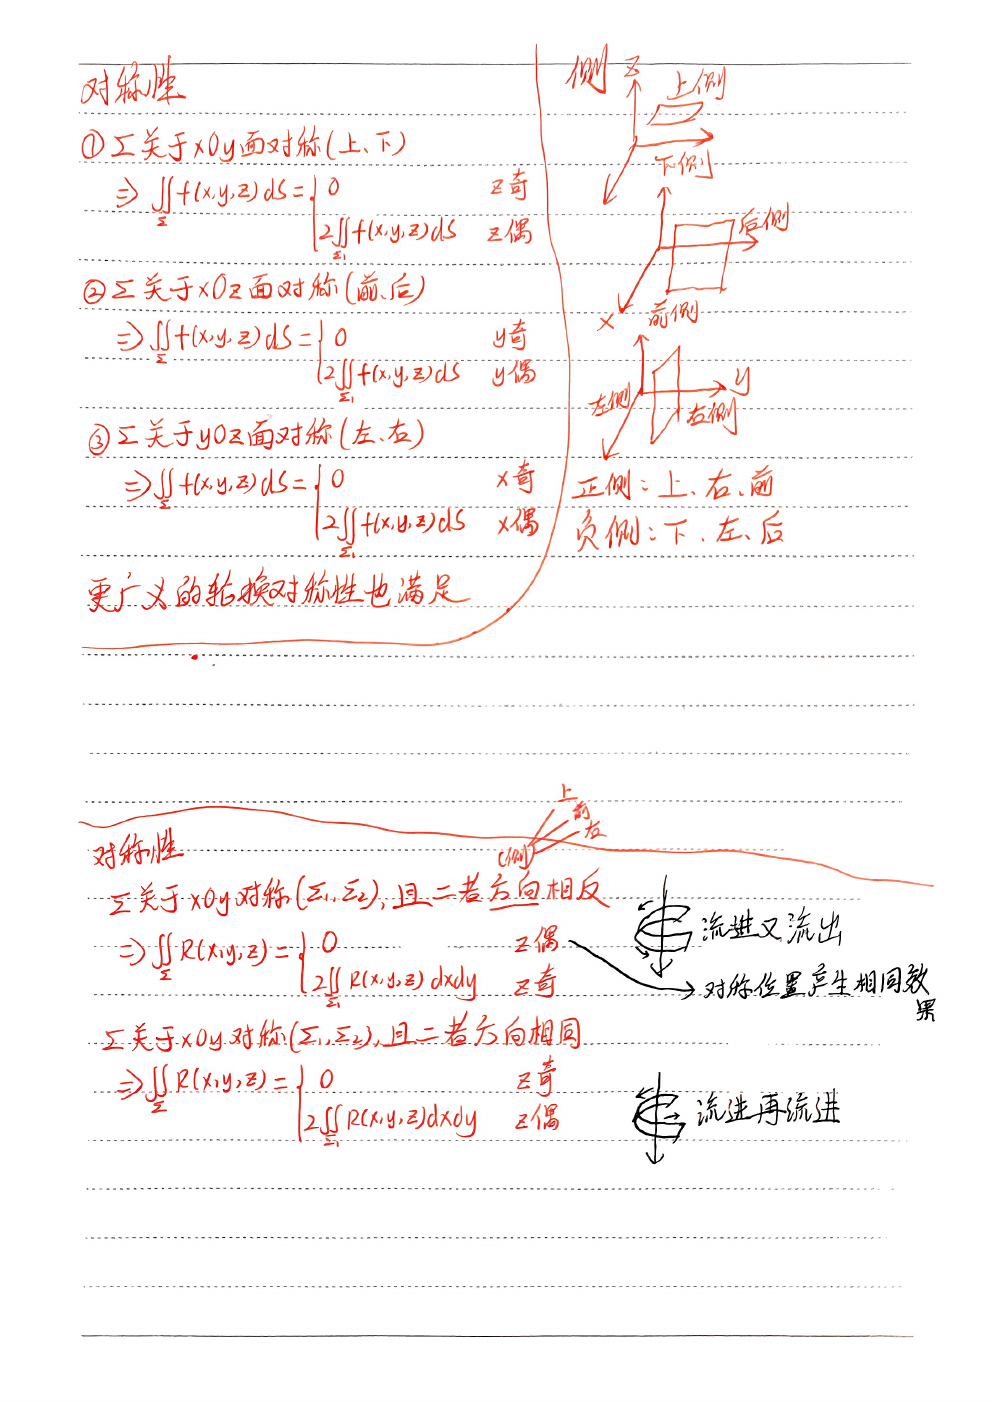 对称性
①Σ关于xOy面对称(上、下)
⇒∬Σ f(x,y,z)dS={0 z奇
2∬Σ₁ f(x,y,z)dS z偶
②Σ关于xOz面对称(前、后)
⇒∬Σ f(x,y,z)dS={0 y奇
2∬Σ₁ f(x,y,z)dS y偶
③Σ关于yOz面对称(左、右)
⇒∬Σ f(x,y,z)dS={0 x奇
2∬Σ₁ f(x,y,z)dS x偶
更广义的轮换对称性也满足
侧 z
上侧
下侧
后侧
x 前侧
y
左侧
右侧
正侧:上、右、前
负侧:下、左、后
上
前
右
(侧)
对称性
Σ关于xOy对称(Σ₁,Σ₂),且二者方向相反
⇒∬Σ R(x,y,z)={0 z偶
2∬Σ₁ R(x,y,z)dxdy z奇
流进又流出
对称位置产生相同效果
Σ关于xOy对称(Σ₁,Σ₂),且二者方向相同
⇒∬Σ R(x,y,z)={0 z奇
2∬Σ₁ R(x,y,z)dxdy z偶
流进再流进